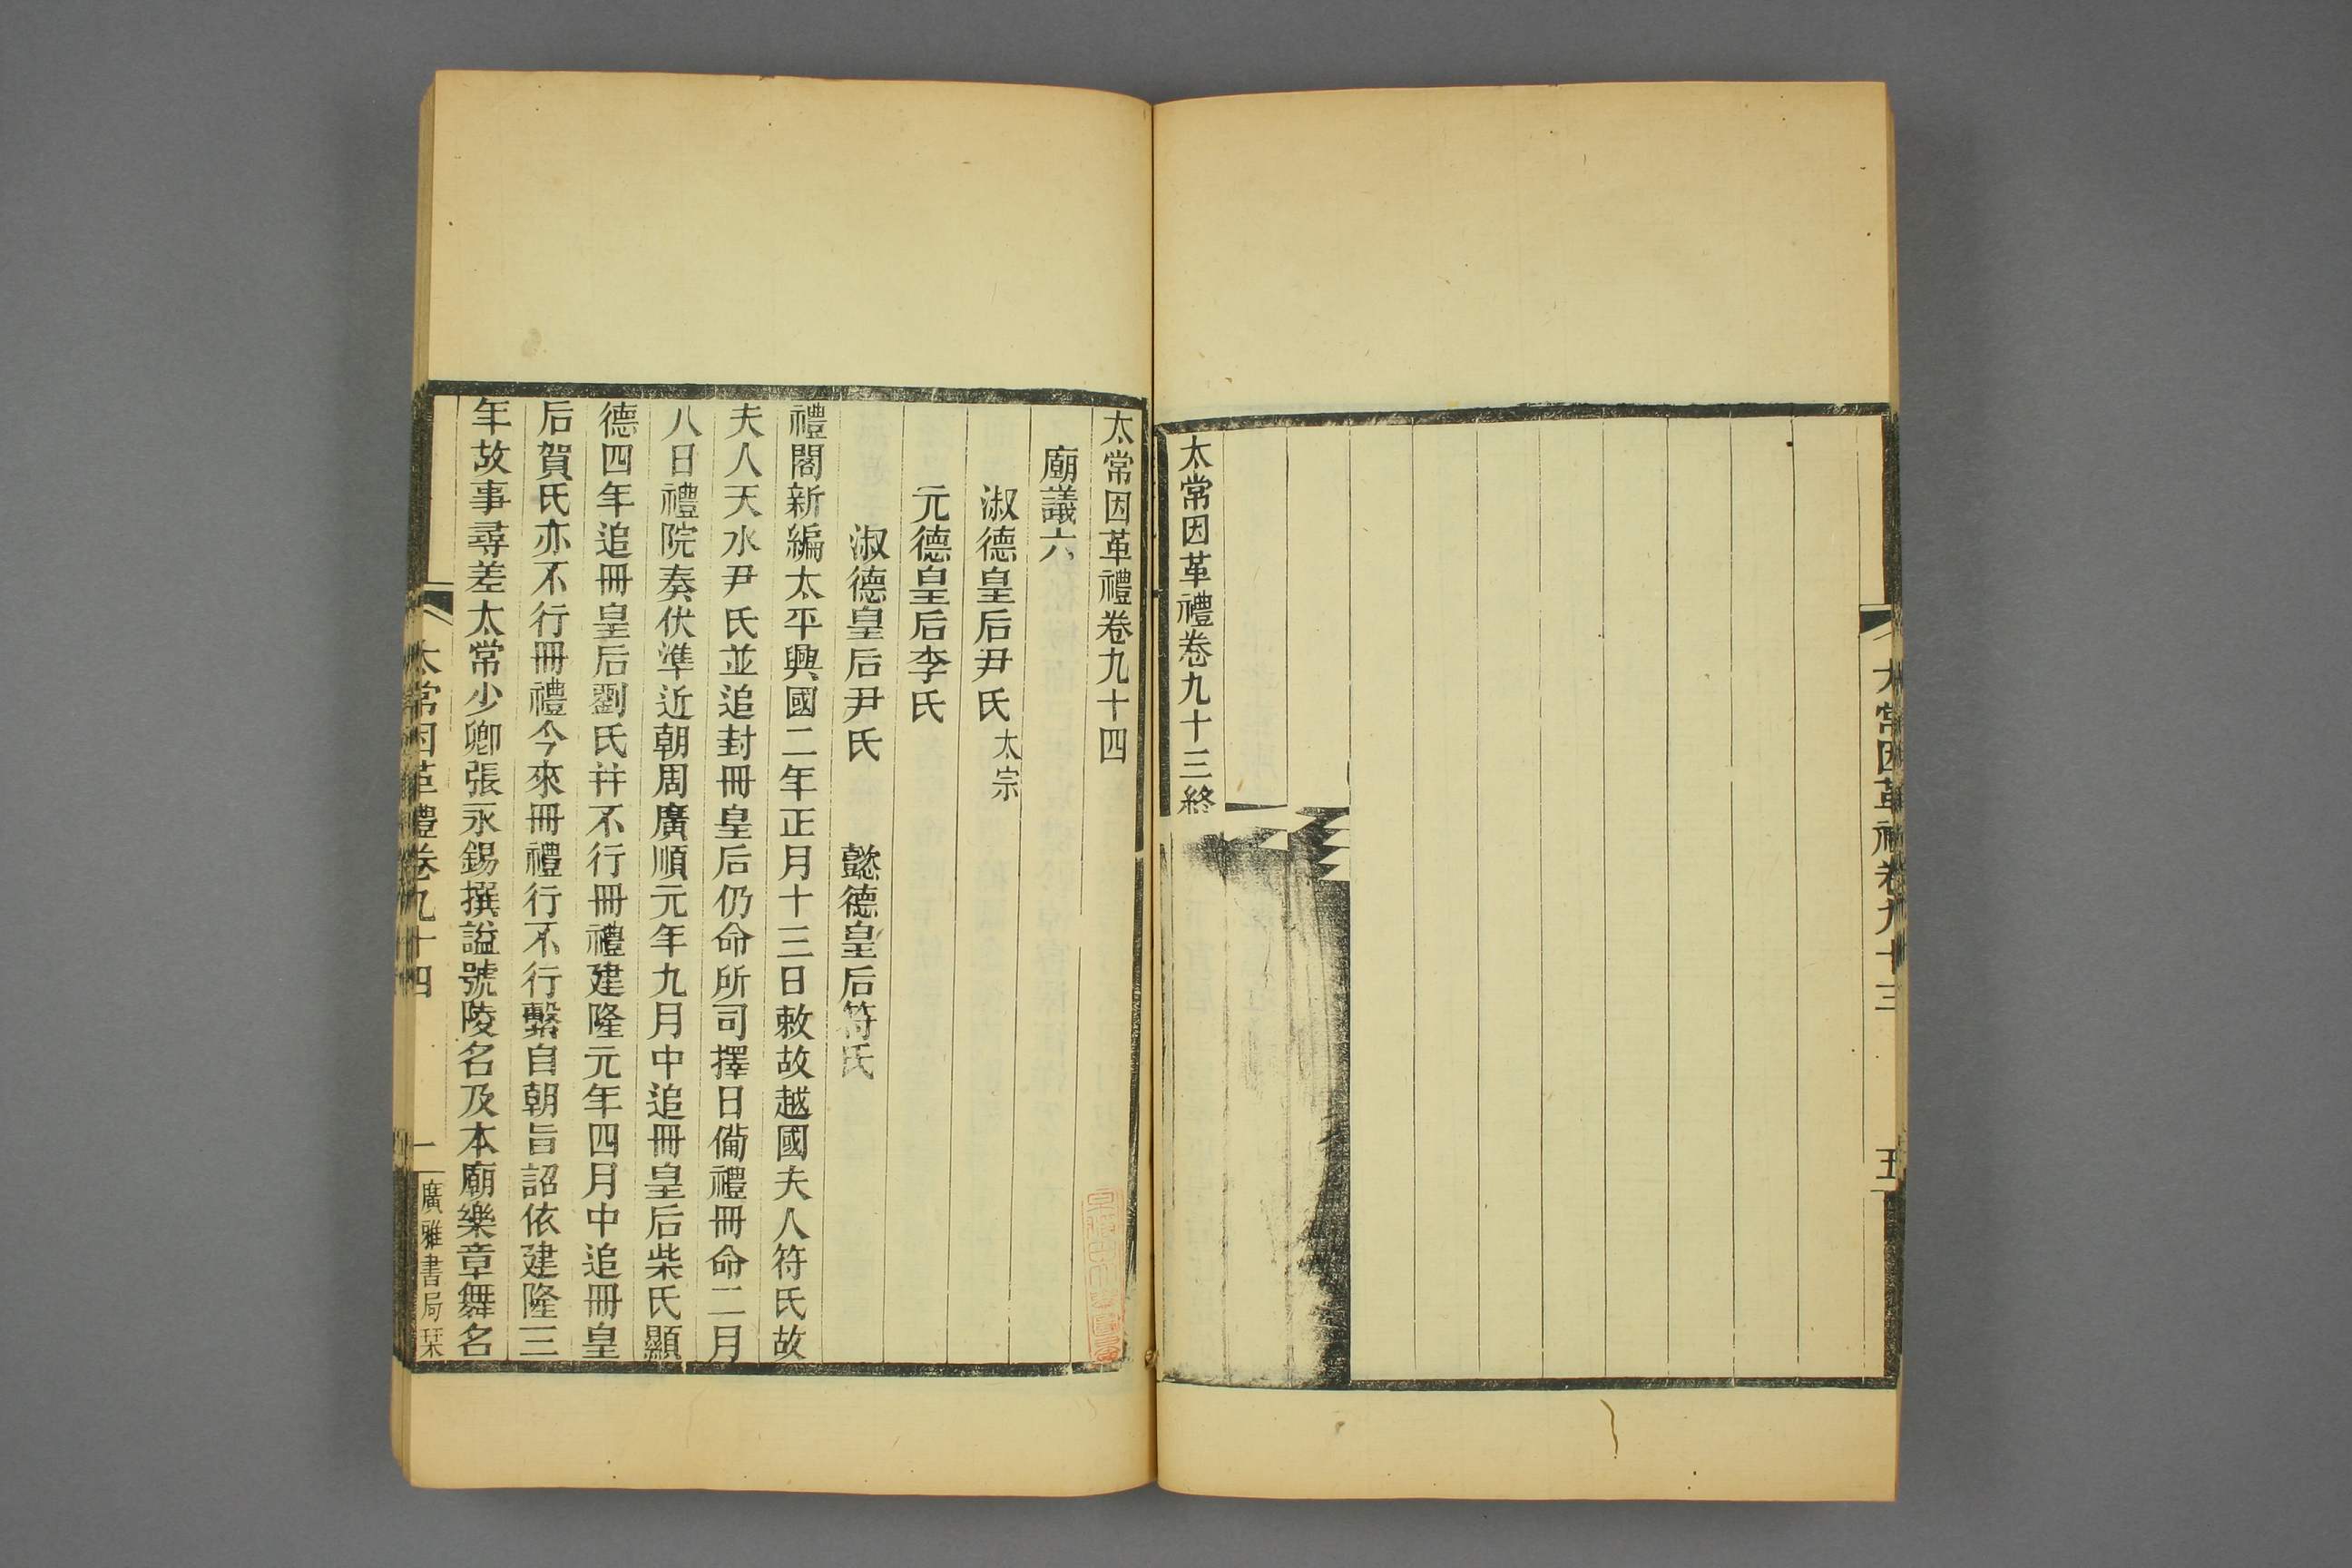 太常因革禮卷九十三
五
太常因革禮卷九十三終
太常因革禮卷九十四
廟議六
淑德皇后尹氏太宗
元德皇后李氏
淑德皇后尹氏　懿德皇后符氏
禮閣新編太平興國二年正月十三日敕故越國夫人符氏故
夫人天水尹氏並追封冊皇后仍命所司擇日備禮冊命二月
八日禮院奏伏準近朝周廣順元年九月中追冊皇后柴氏顯
德四年追冊皇后劉氏并不行冊禮建隆元年四月中追冊皇
后賀氏亦不行冊禮今來冊禮行不行繫自朝旨詔依建隆三
年故事尋差太常少卿張永錫撰諡號陵名及本廟樂章舞名
太常因革禮卷九十四
一
廣雅書局栞